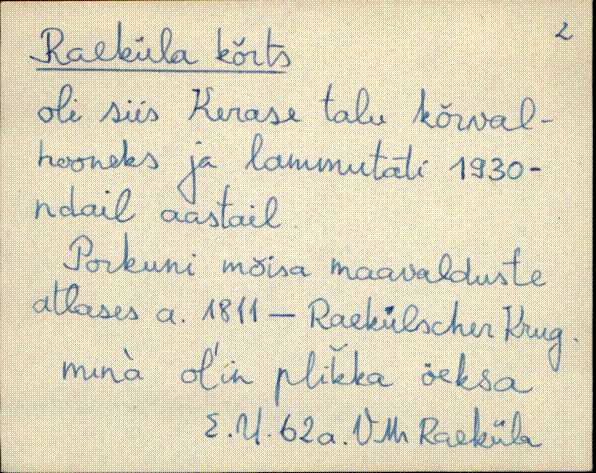 2
Raeküla kõrts
oli siis Kerase talu kõrval-
hooneks ja lammutati 1930-
ndail aastail.
Porkuni mõisa maavalduste
atlases a. 1811 — Raekülscher Krug.
minà ol'in plikka öeksa
E.U. 62a. VMr Raeküla